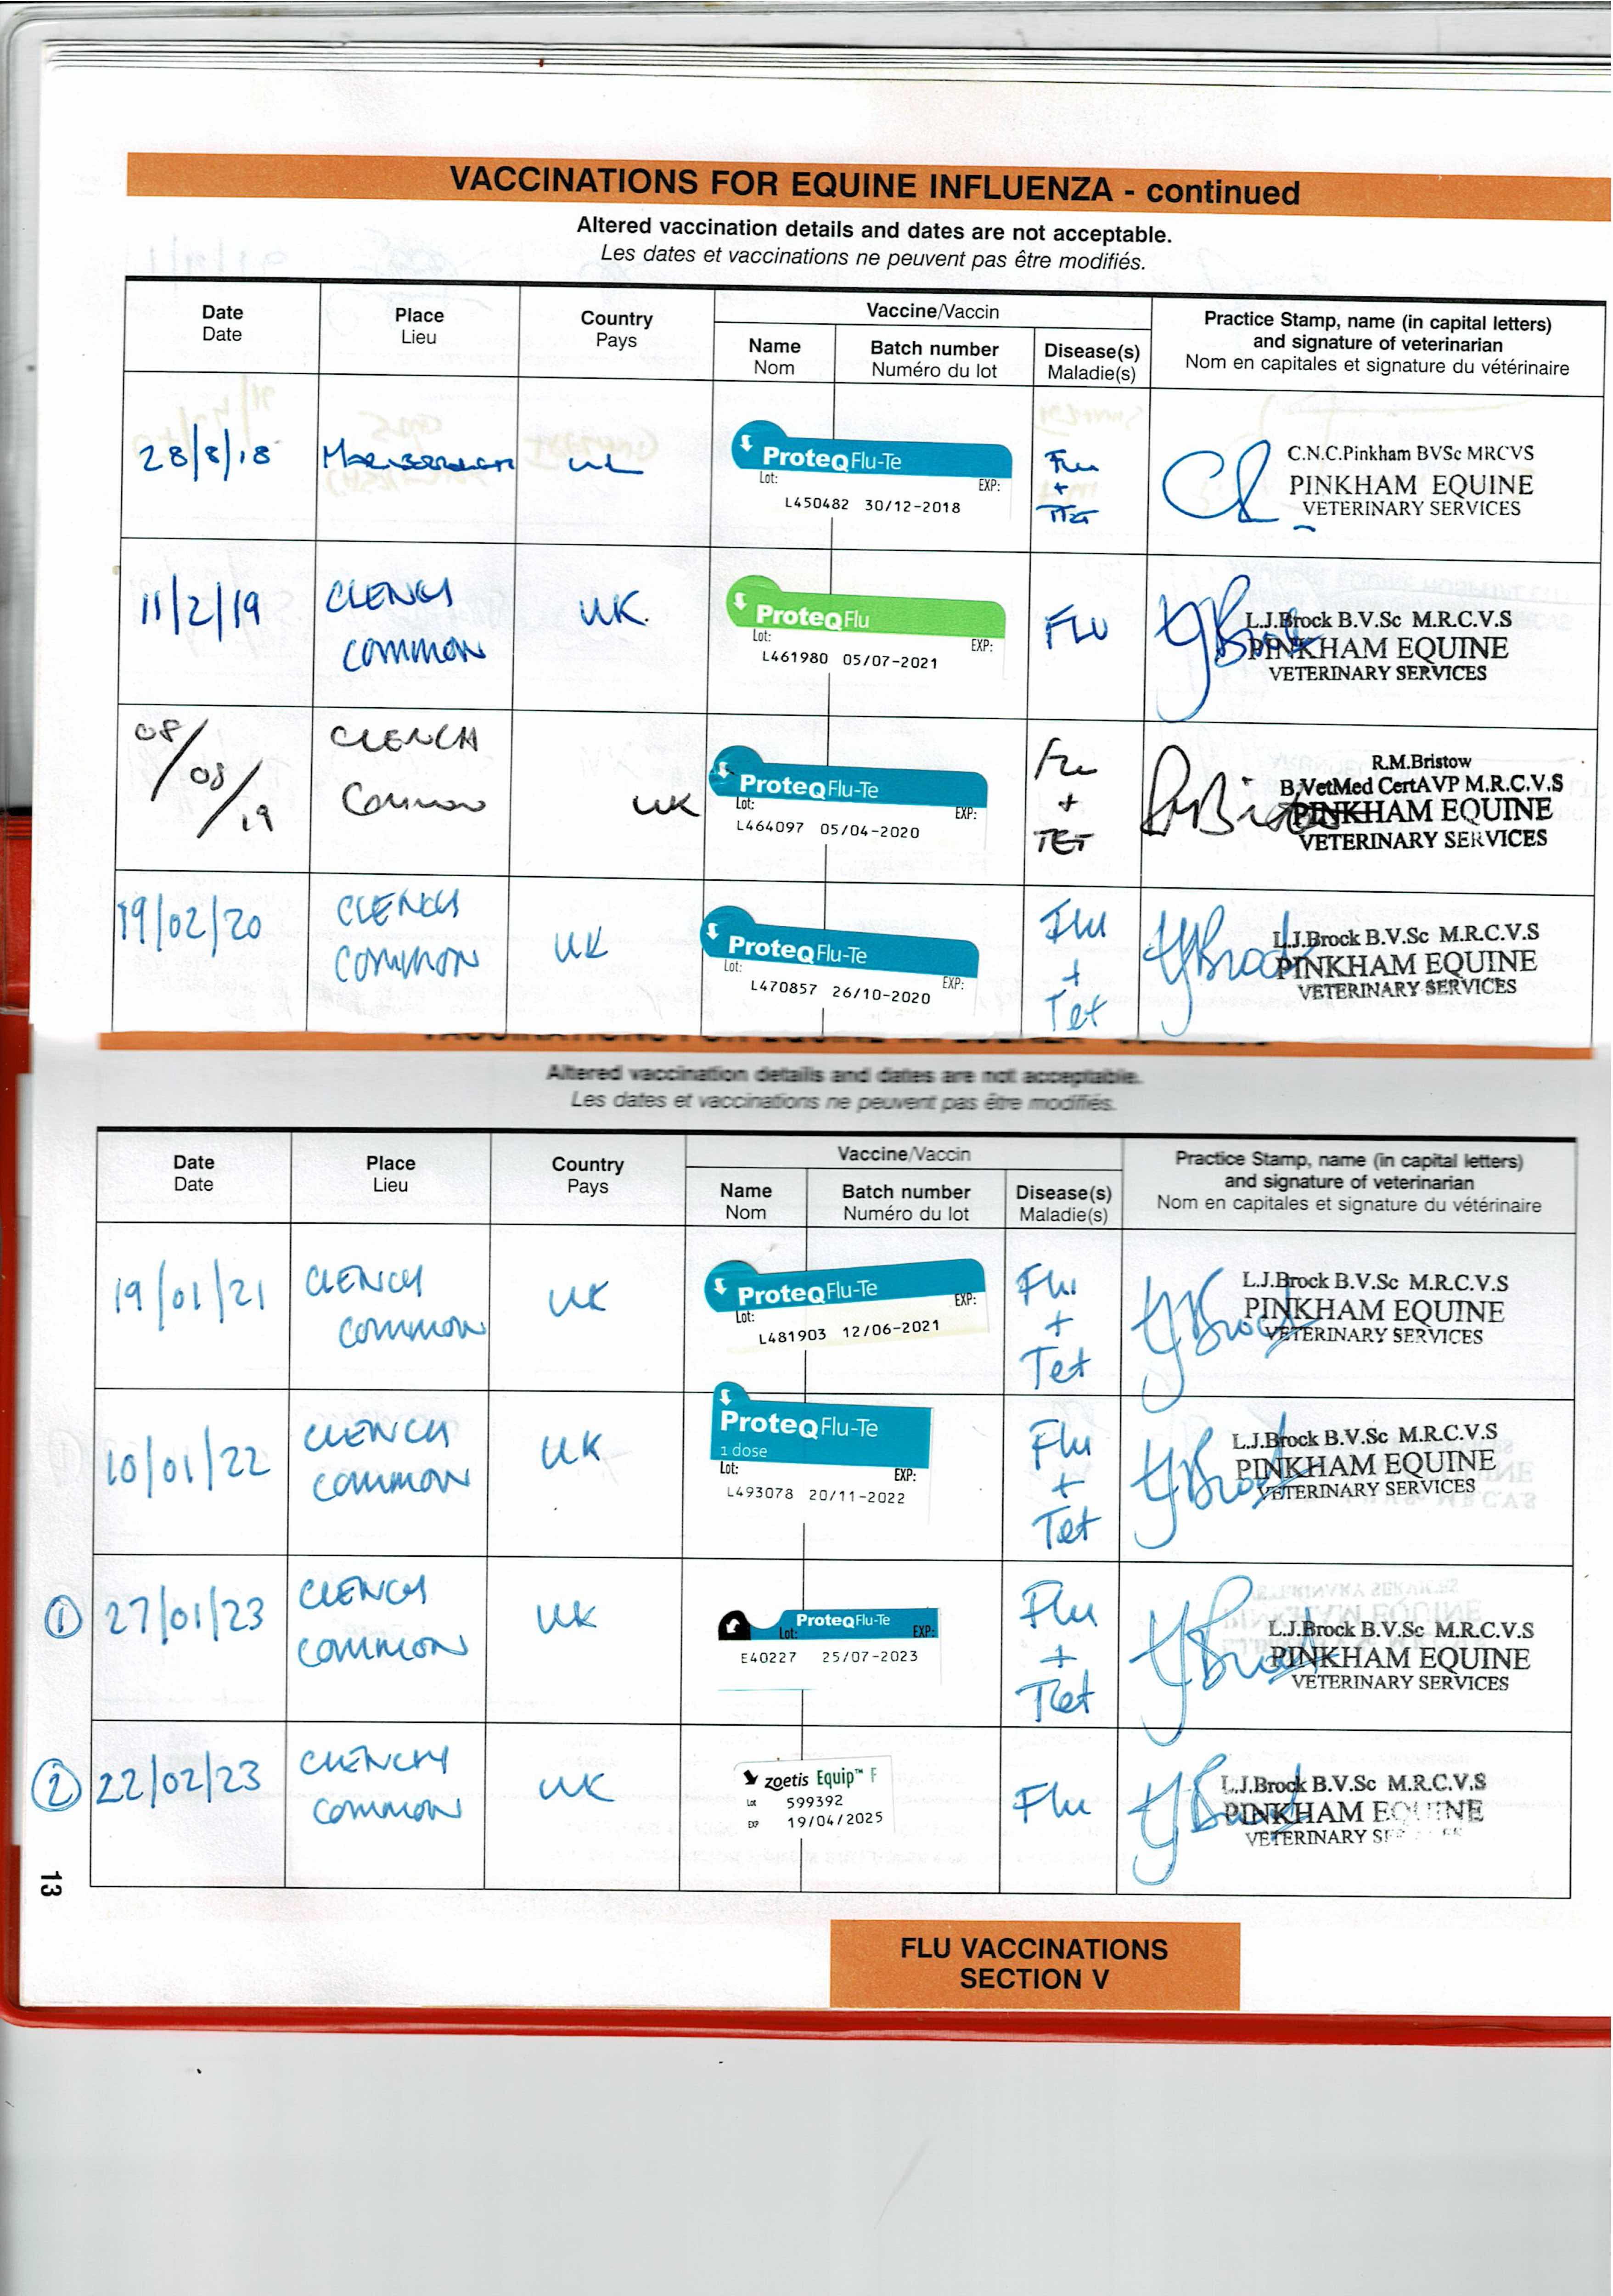 VACCINATIONS FOR EQUINE INFLUENZA - continued
Altered vaccination details and dates are not acceptable.
Les dates et vaccinations ne peuvent pas être modifiés.
Date
Date
Place
Lieu
Country
Pays
Vaccine/Vaccin
Name
Nom
Batch number
Numéro du lot
Disease(s)
Maladie(s)
Practice Stamp, name (in capital letters)
and signature of veterinarian
Nom en capitales et signature du vétérinaire
28/8/18
UK
ProteqFlu-Te
Lot: EXP:
L450482 30/12-2018
Flu
+
TET
C.N.C.Pinkham BVSc MRCVS
PINKHAM EQUINE
VETERINARY SERVICES
11/2/19
CLENCH
COMMON
UK.
ProteqFlu
Lot: EXP:
L461980 05/07-2021
FLU
L.J.Brock B.V.Sc M.R.C.V.S
PINKHAM EQUINE
VETERINARY SERVICES
08/
/08/
/19
CLENCH
Common
UK
ProteqFlu-Te
Lot: EXP:
L464097 05/04-2020
Flu
+
TET
R.M.Bristow
B.VetMed CertAVP M.R.C.V.S
PINKHAM EQUINE
VETERINARY SERVICES
19/02/20
CLENCH
COMMON
UK
ProteqFlu-Te
Lot: EXP:
L470857 26/10-2020
Flu
+
Tet
L.J.Brock B.V.Sc M.R.C.V.S
PINKHAM EQUINE
VETERINARY SERVICES
Altered vaccination details and dates are not acceptable.
Les dates et vaccinations ne peuvent pas être modifiés.
Date
Date
Place
Lieu
Country
Pays
Vaccine/Vaccin
Name
Nom
Batch number
Numéro du lot
Disease(s)
Maladie(s)
Practice Stamp, name (in capital letters)
and signature of veterinarian
Nom en capitales et signature du vétérinaire
19/01/21
CLENCH
COMMON
UK
ProteqFlu-Te
Lot: EXP:
L481903 12/06-2021
Flu
+
Tet
L.J.Brock B.V.Sc M.R.C.V.S
PINKHAM EQUINE
VETERINARY SERVICES
10/01/22
CLENCH
COMMON
UK
ProteqFlu-Te
1 dose
Lot: EXP:
L493078 20/11-2022
Flu
+
Tet
L.J.Brock B.V.Sc M.R.C.V.S
PINKHAM EQUINE
VETERINARY SERVICES
① 27/01/23
CLENCH
COMMON
UK
ProteqFlu-Te
Lot: EXP:
E40227 25/07-2023
Flu
+
Tet
L.J.Brock B.V.Sc M.R.C.V.S
PINKHAM EQUINE
VETERINARY SERVICES
② 22/02/23
CLENCH
COMMON
UK
zoetis Equip™ F
Lot 599392
EXP 19/04/2025
Flu
L.J.Brock B.V.Sc M.R.C.V.S
PINKHAM EQUINE
VETERINARY
13
FLU VACCINATIONS
SECTION V